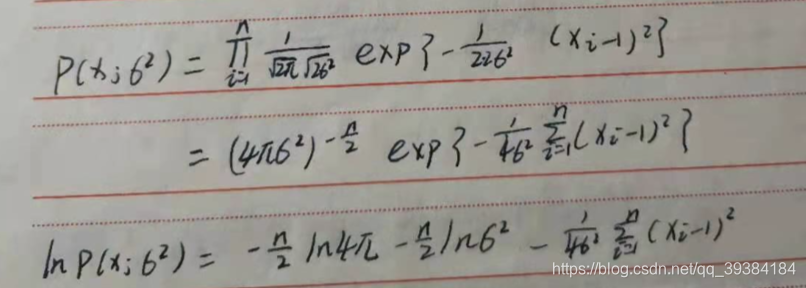 P(x;σ²) = ∏_{i=1}^{n} 1/(√2π √2σ²) exp{-1/(2·2σ²) (xi-1)²}
= (4πσ²)^{-n/2} exp{-1/(4σ²) ∑_{i=1}^{n} (xi-1)²}
ln P(x;σ²) = -n/2 ln4π - n/2 lnσ² - 1/(4σ²) ∑_{i=1}^{n} (xi-1)²
https://blog.csdn.net/qq_39384184